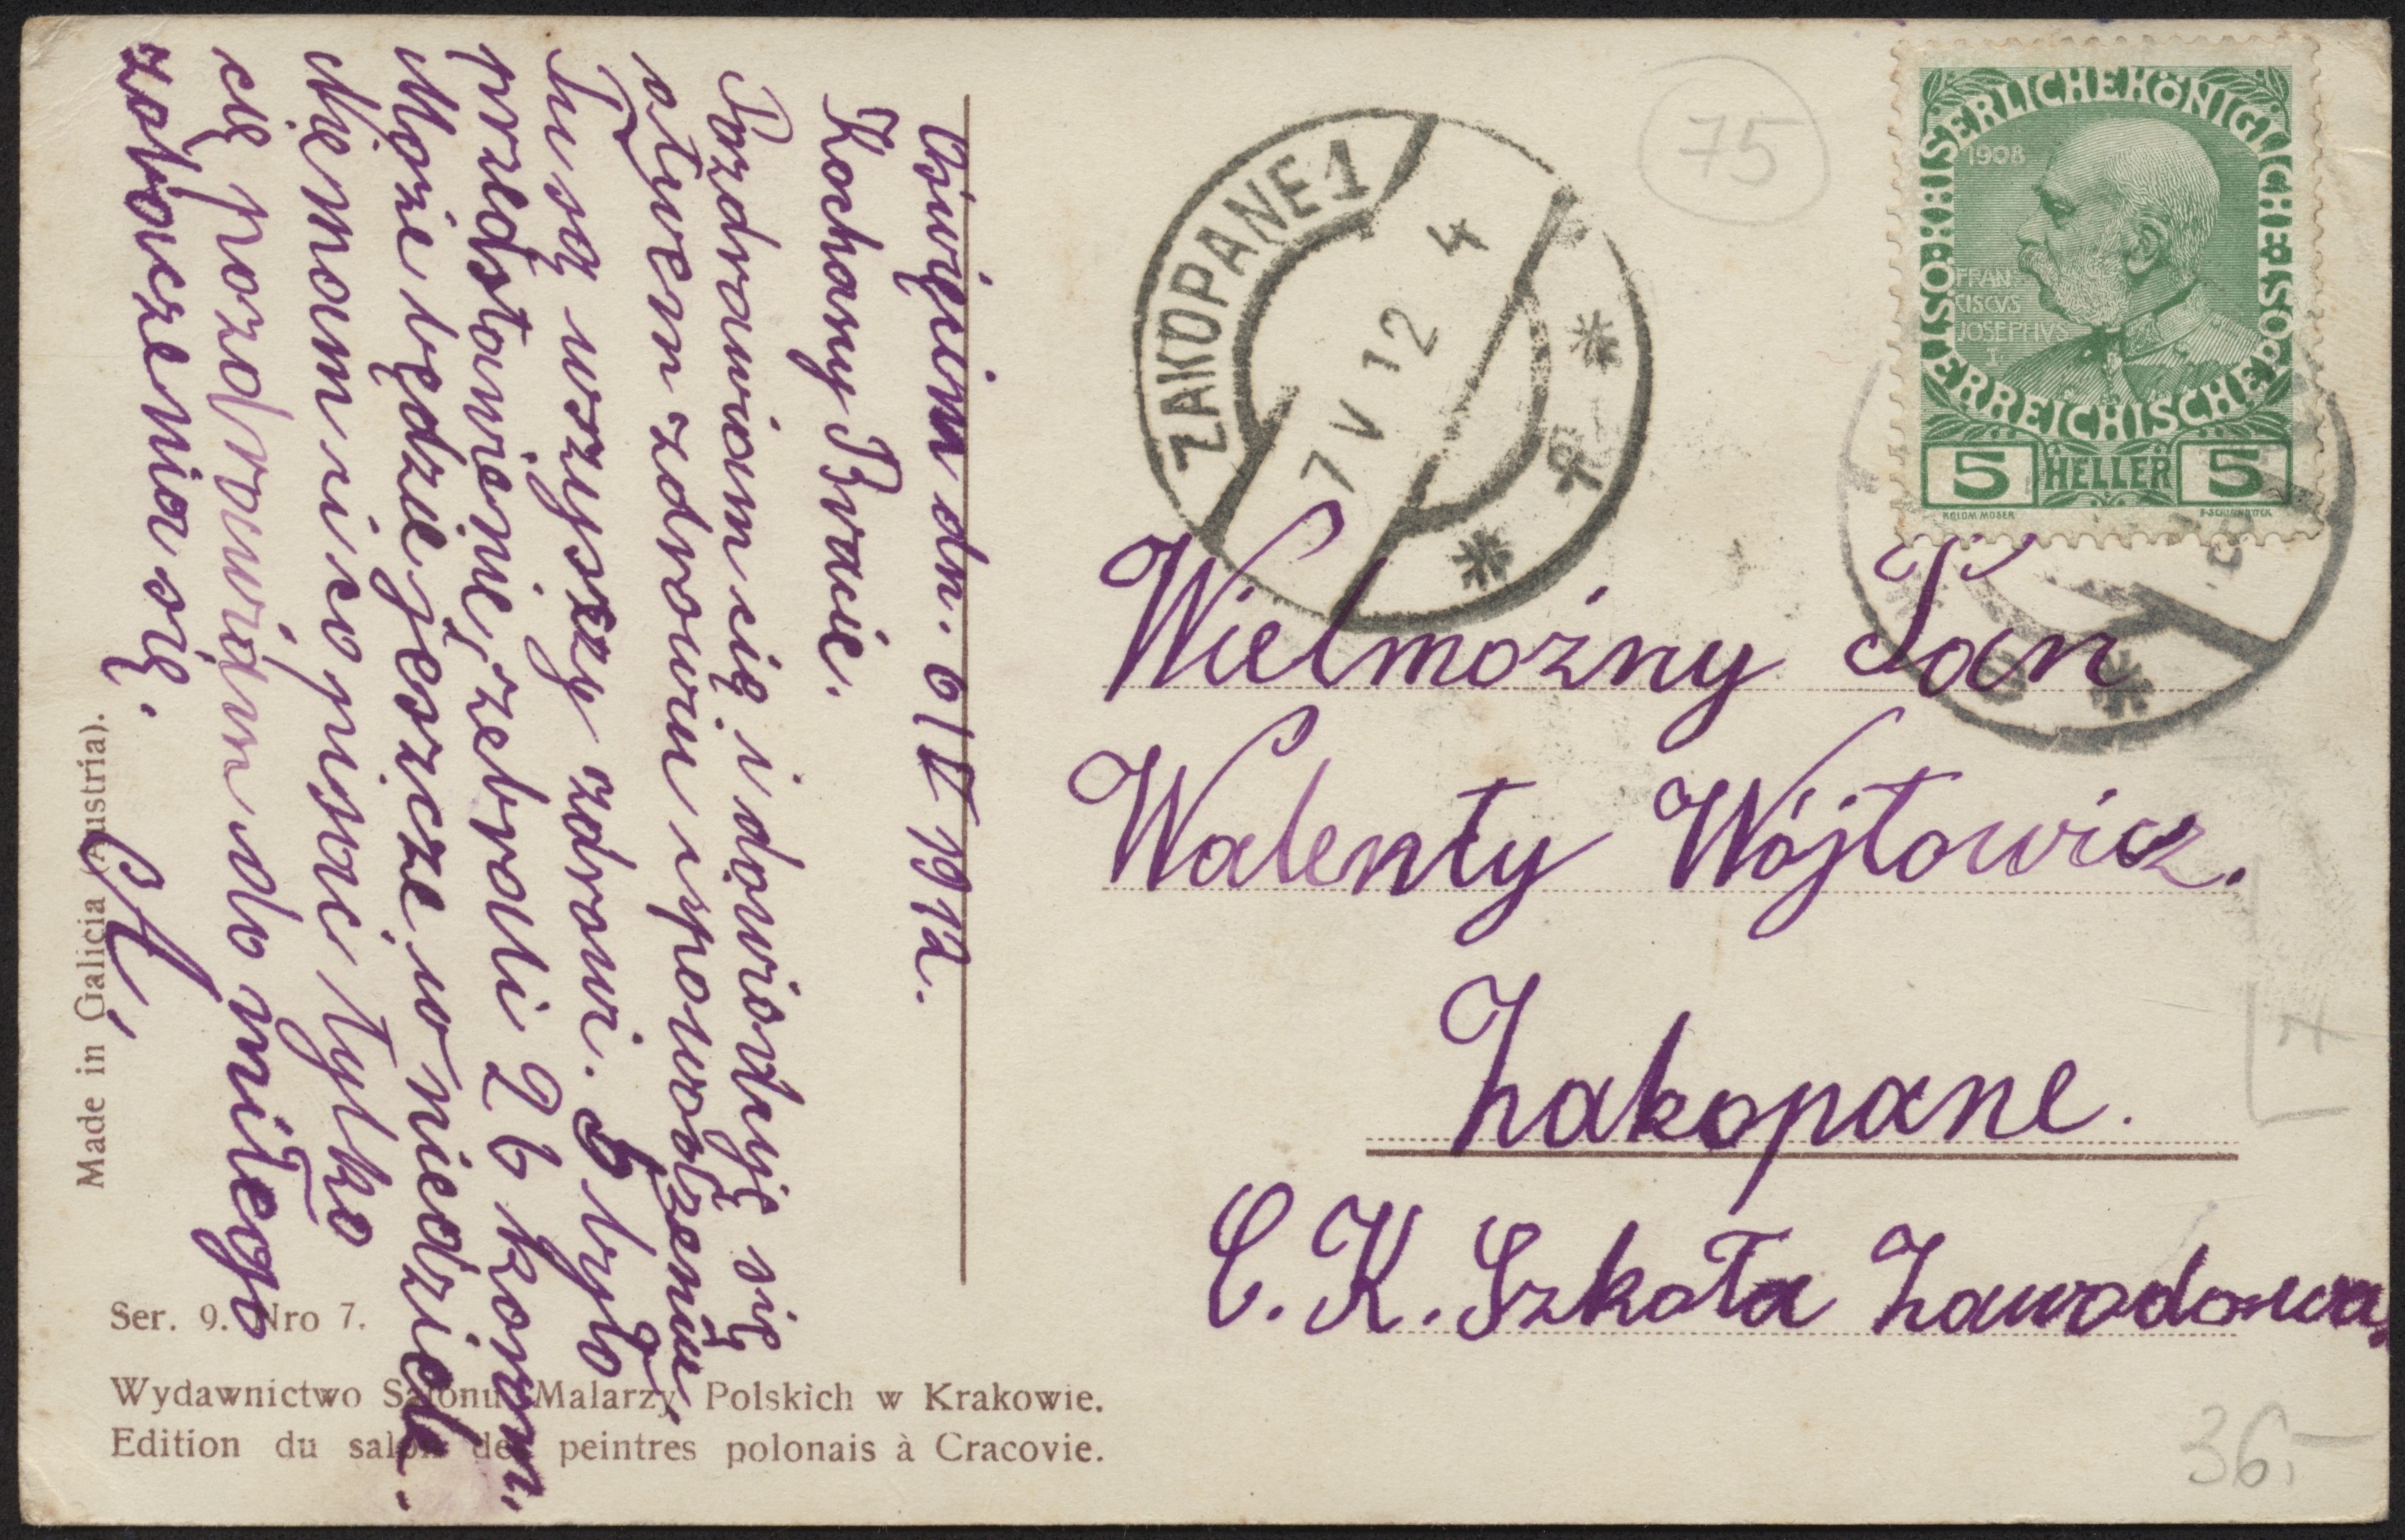 Oświęcim dn. 6/V 1912.
Kochany Bracie.
Pozdrawiam cię i dowiaduję się
o twem zdrowiu i powodzeniu,
Tu są wszyscy zdrowi. Było
przedstawienie, zebrali 26 koron.
Może będzie jeszcze w niedziele.
Nie mam ci co pisać tylko
cię pozdrawiam do miłego
zobaczenia się.
Made in Galicia (Austria).
Ser. 9. Nro 7.
Wydawnictwo Salonu Malarzy Polskich w Krakowie.
Edition du salon des peintres polonais à Cracovie.
75
ZAKOPANE 1
7 V 12 4
KAISERLICHE KÖNIGLICHE ÖSTERREICHISCHE POST
1908
FRAN
CISCVS
JOSEPHVS
I
5 HELLER 5
KOLOM. MOSER
F. SCHIRNBÖCK
Wielmożny Pan
Walenty Wójtowicz.
Zakopane.
C. K. Szkoła Zawodowa.
36.-